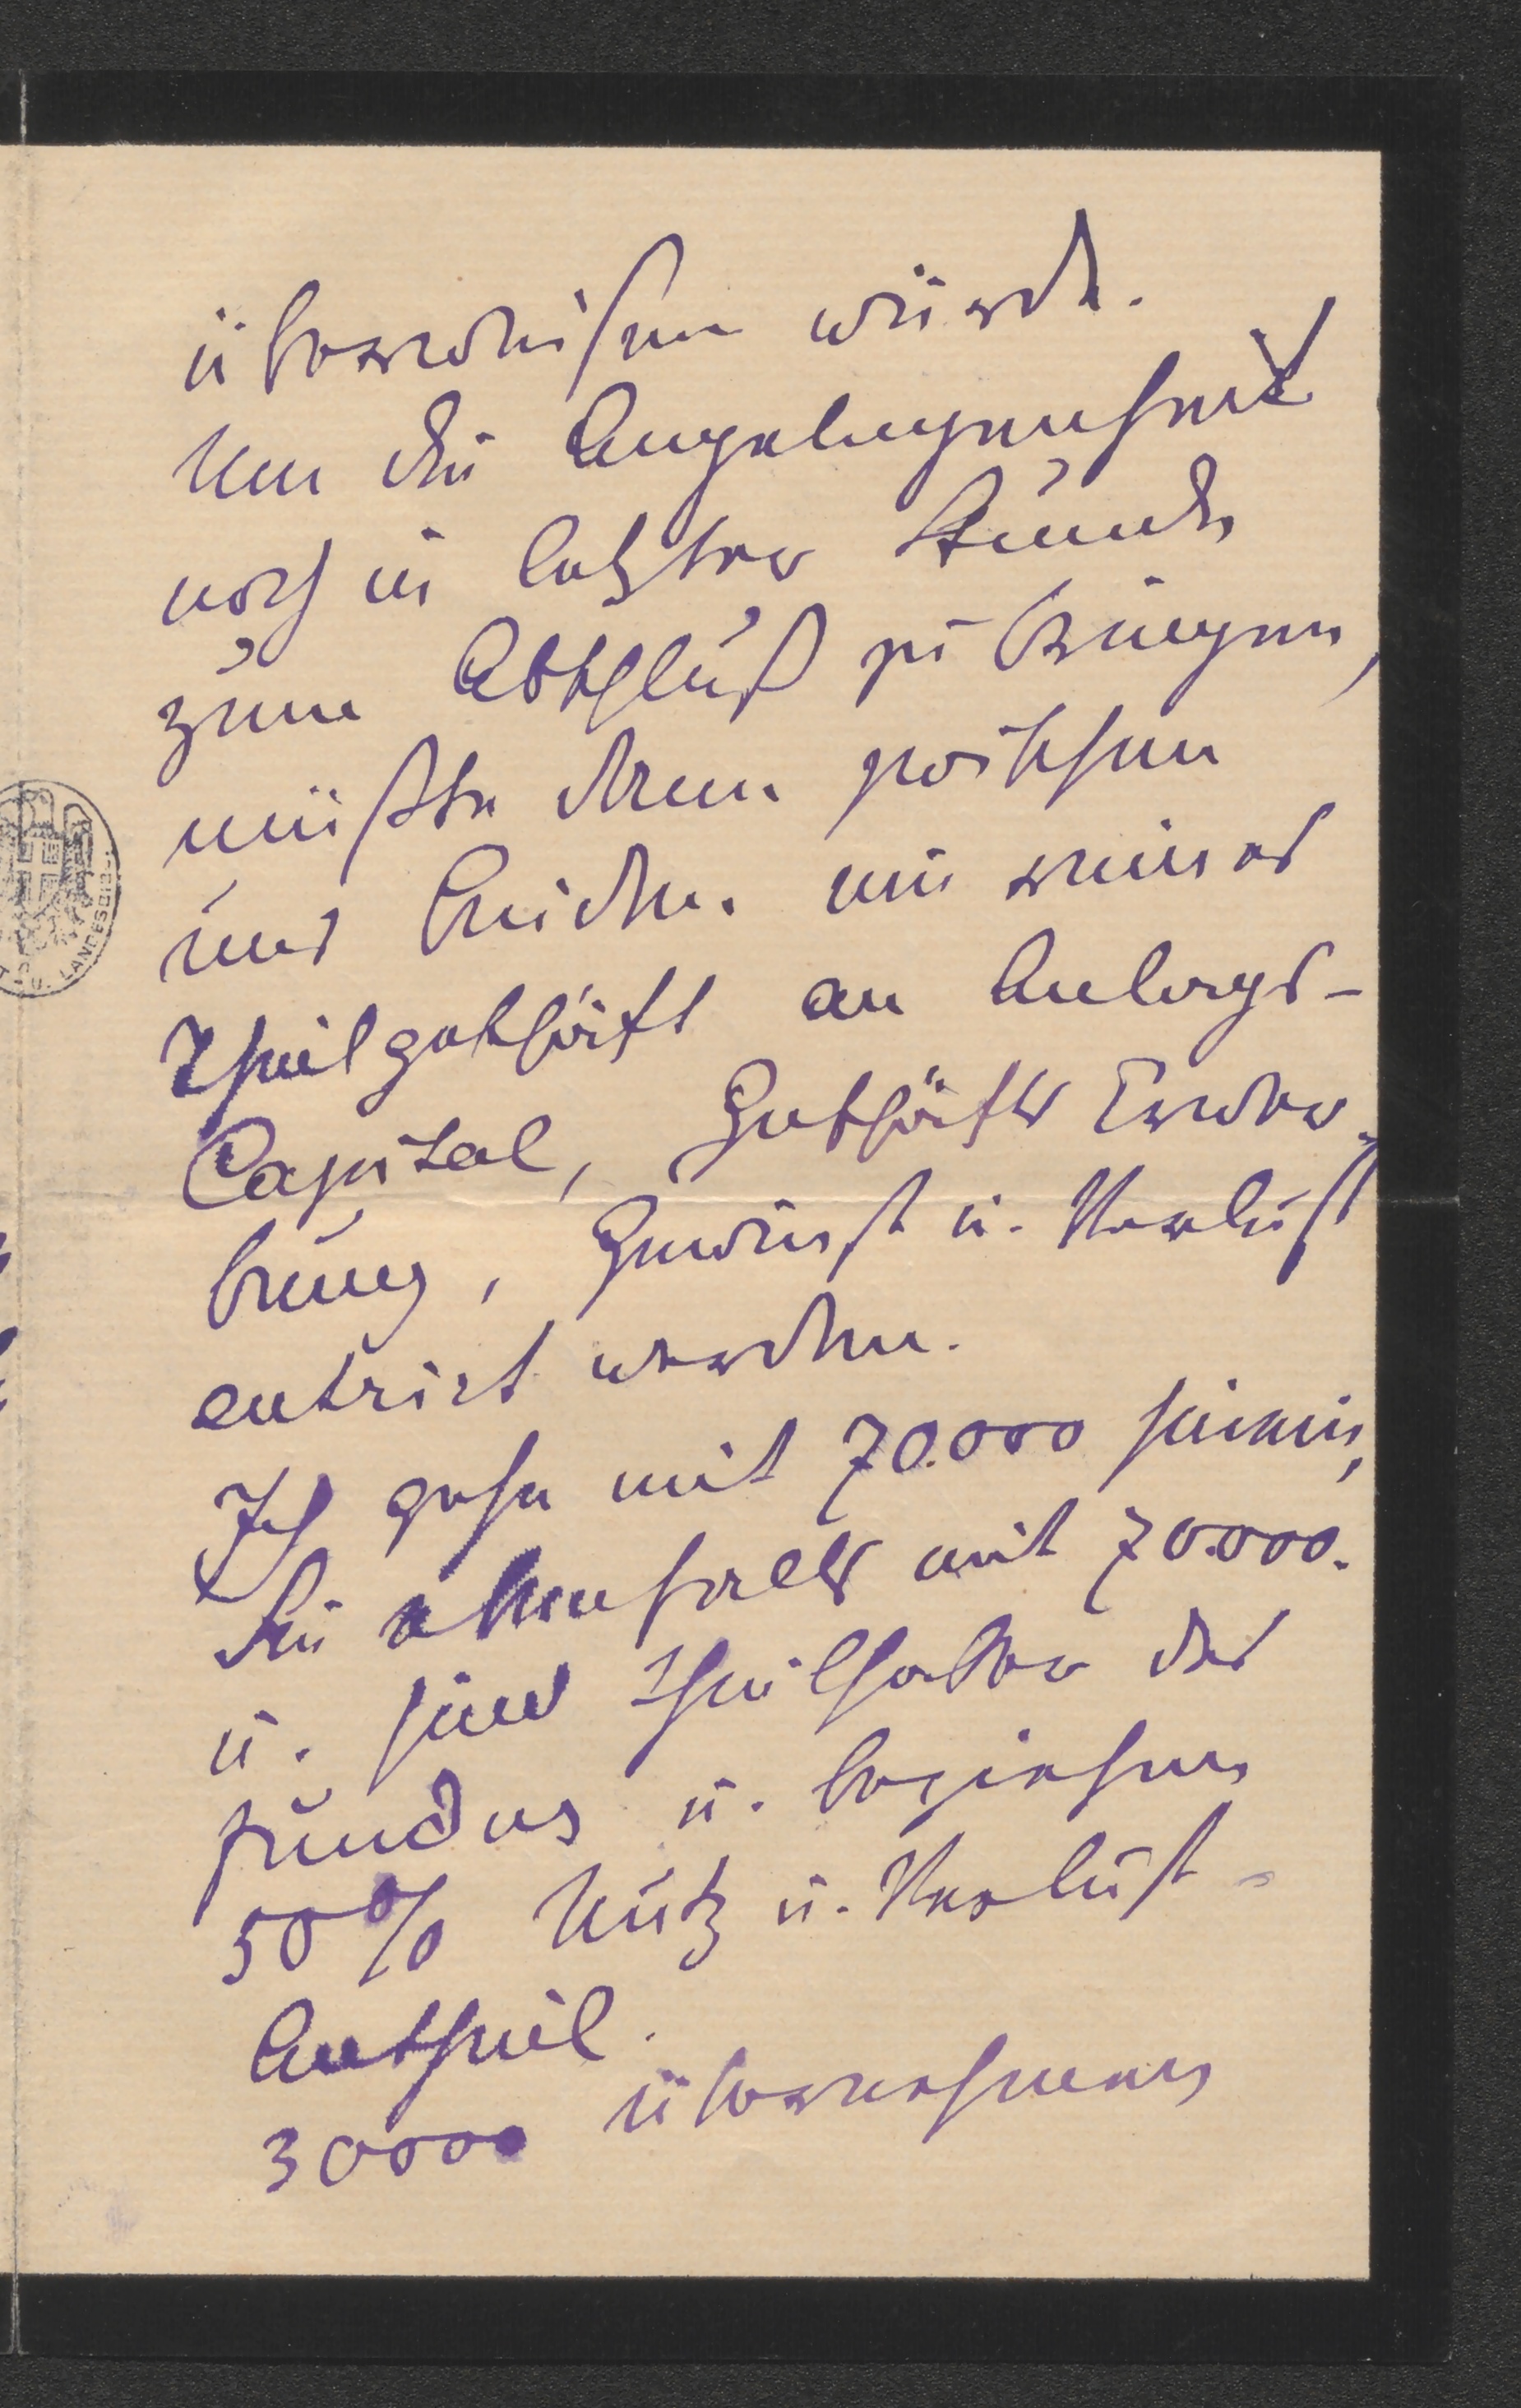 überweisen würde.
Um die Angelegenheit
noch in letzter Stunde
zum Abschluß zu bringen,
müßte denn zwischen
uns beiden ein reines
Theilgeschäft an Anlags-
Capital, Geschäfts Erwer-
bung, Gewinst u. Verlust
entrirt werden.
Ich gehe mit 70.000 hinein,
Sie ebenfalls mit 70.000.
u. sind Theilhaber des
fundus u. beziehen
50% Nutz u. Verlust-
Antheil.
30000 übernehmen
LANDESBIBL.